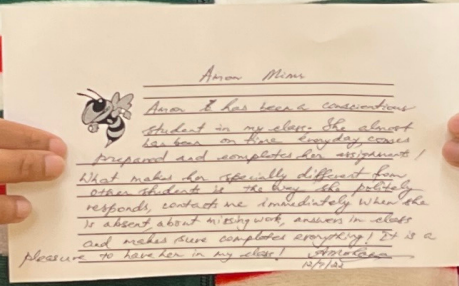 Amon
Amon has been a conscientious
student in my class. She almost
has been on time everyday, comes
prepared and completes her assignments!
What makes her specially different from
other students is the way she politely
responds, contacts me immediately when she
is absent, about missing work, answers in class
and makes sure completes everything! It is a
pleasure to have her in my class!